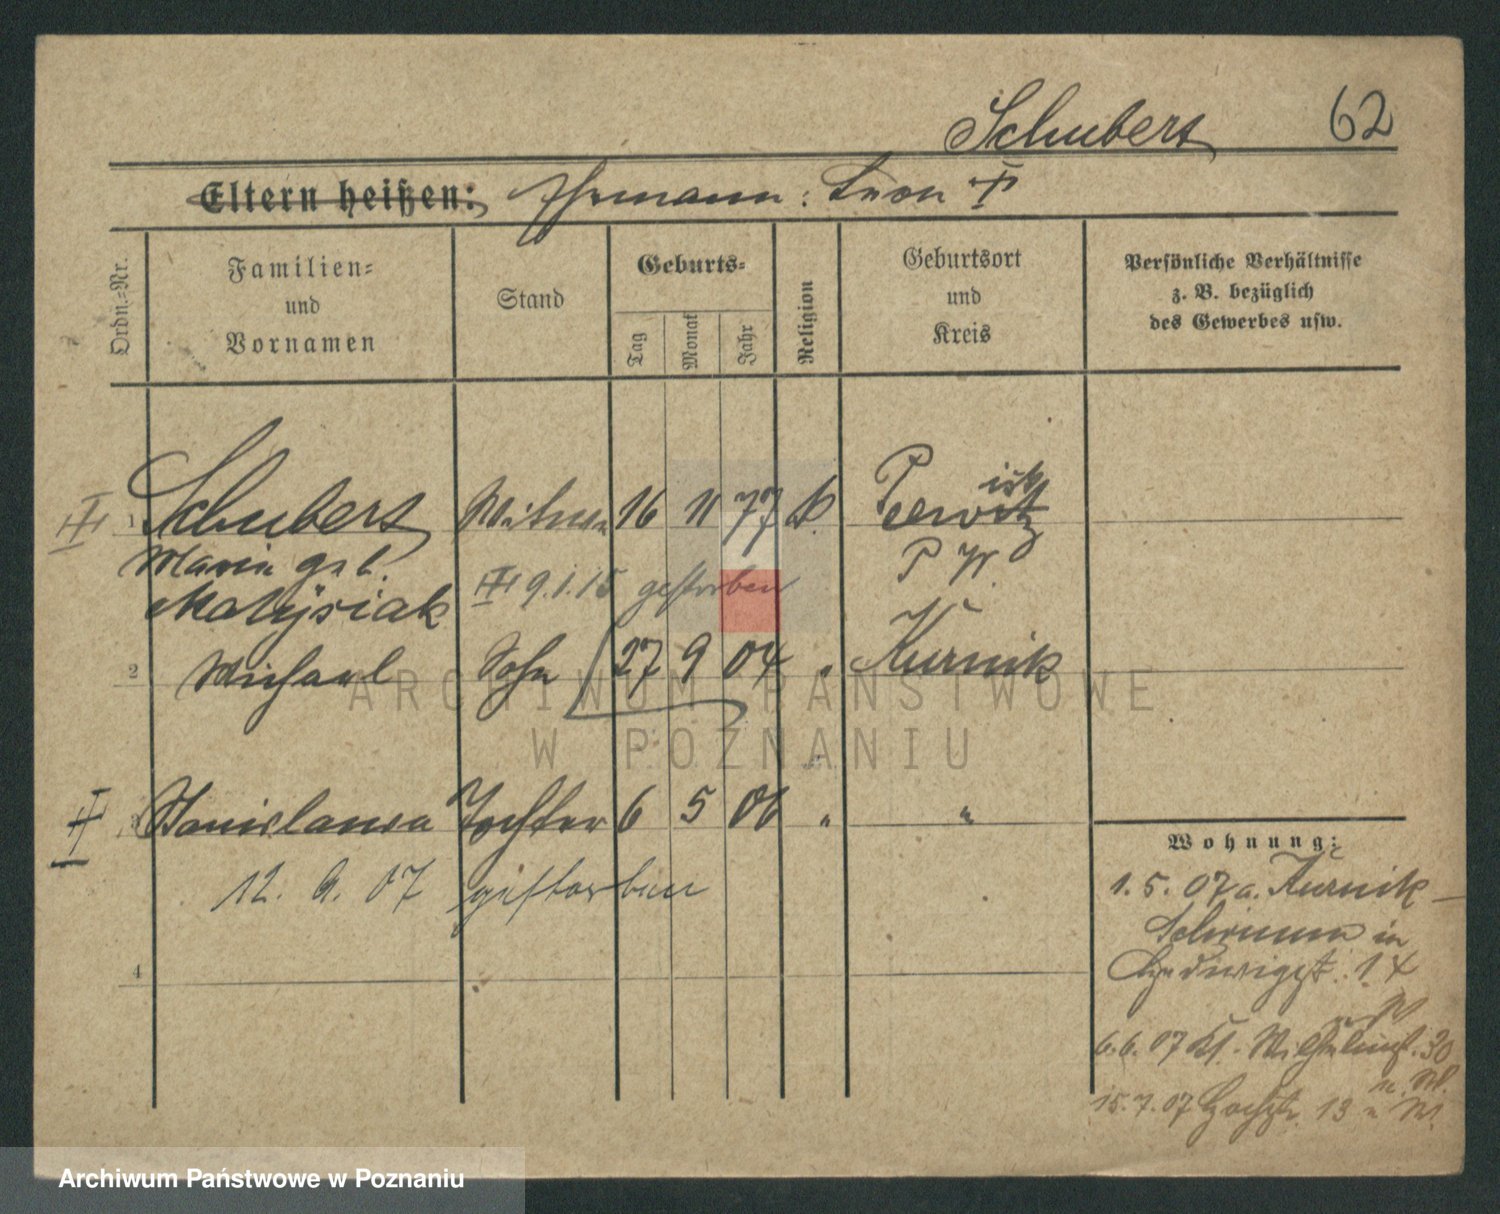 Schubert 62
Eltern heißen: Ehemann: Leon
Ordn.=Nr.
Familien=
und
Vornamen
Stand
Geburts=
Tag
Monat
Jahr
Religion
Geburtsort
und
Kreis
Persönliche Verhältnisse
z. B. bezüglich
des Gewerbes usw.
1 Schubert Witwe 16 11 77 k
Maria geb. P W.
Matysiak 9.1.15 gestorben
2 Michael Sohn 27 9 04 " Kurnik
3 Stanislawa Tochter 6 5 06 " "
12. 9. 07 gestorben
4
Wohnung:
1. 5. 07 a. Kurnik
Schrimm in
Hedwigst. 14
6.6.07 Kl. 30
15.7.07 13
ARCHIWUM PAŃSTWOWE
W POZNANIU
Archiwum Państwowe w Poznaniu